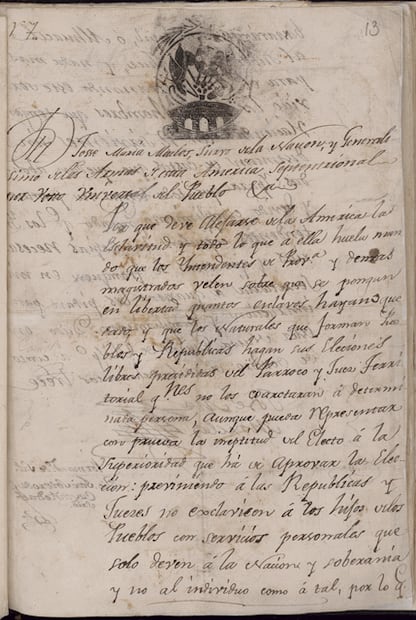 13
Dn. José María Morelos, Siervo de la Nacion, y Generali-
simo de las Armas de esta America Septentrional
por Voto Universal del Pueblo &a.
Por que deve Alejarse de la America la
Esclavitud y todo lo que á ella huela man-
do que los Intendentes de Prova. y demas
magistrados velen sobre que se pongan
en libertad quantos esclavos hayan que-
dado, y que los Naturales que forman Pue-
blos y Republicas hagan sus Elecciones
libres presididas del Parroco y Juez Terri-
torial qnes. no los coartaran á determi-
nada persona, aunque pueda representar
con prueva la ineptitud del Electo á la
Superioridad que ha de Aprovar la Elec-
cion: previniendo á las Republicas y
Jueces no esclavicen á los hijos de los
Pueblos con servicios personales que
solo deven á la Nacion y soberania
y no al individuo como á tal, por lo q.